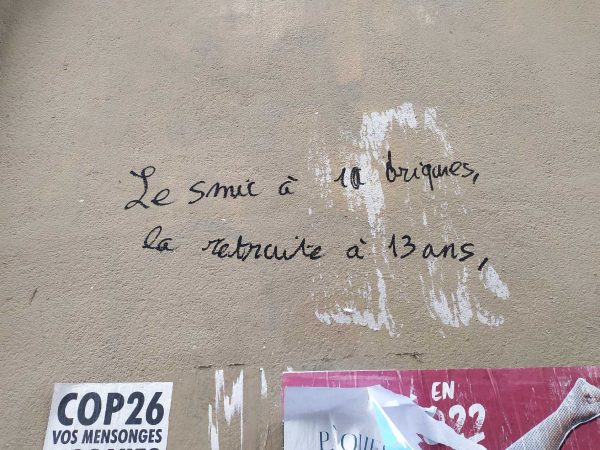 Le smic à 10 briques,
la retraite à 13 ans,
COP26
VOS MENSONGES
EN
2022